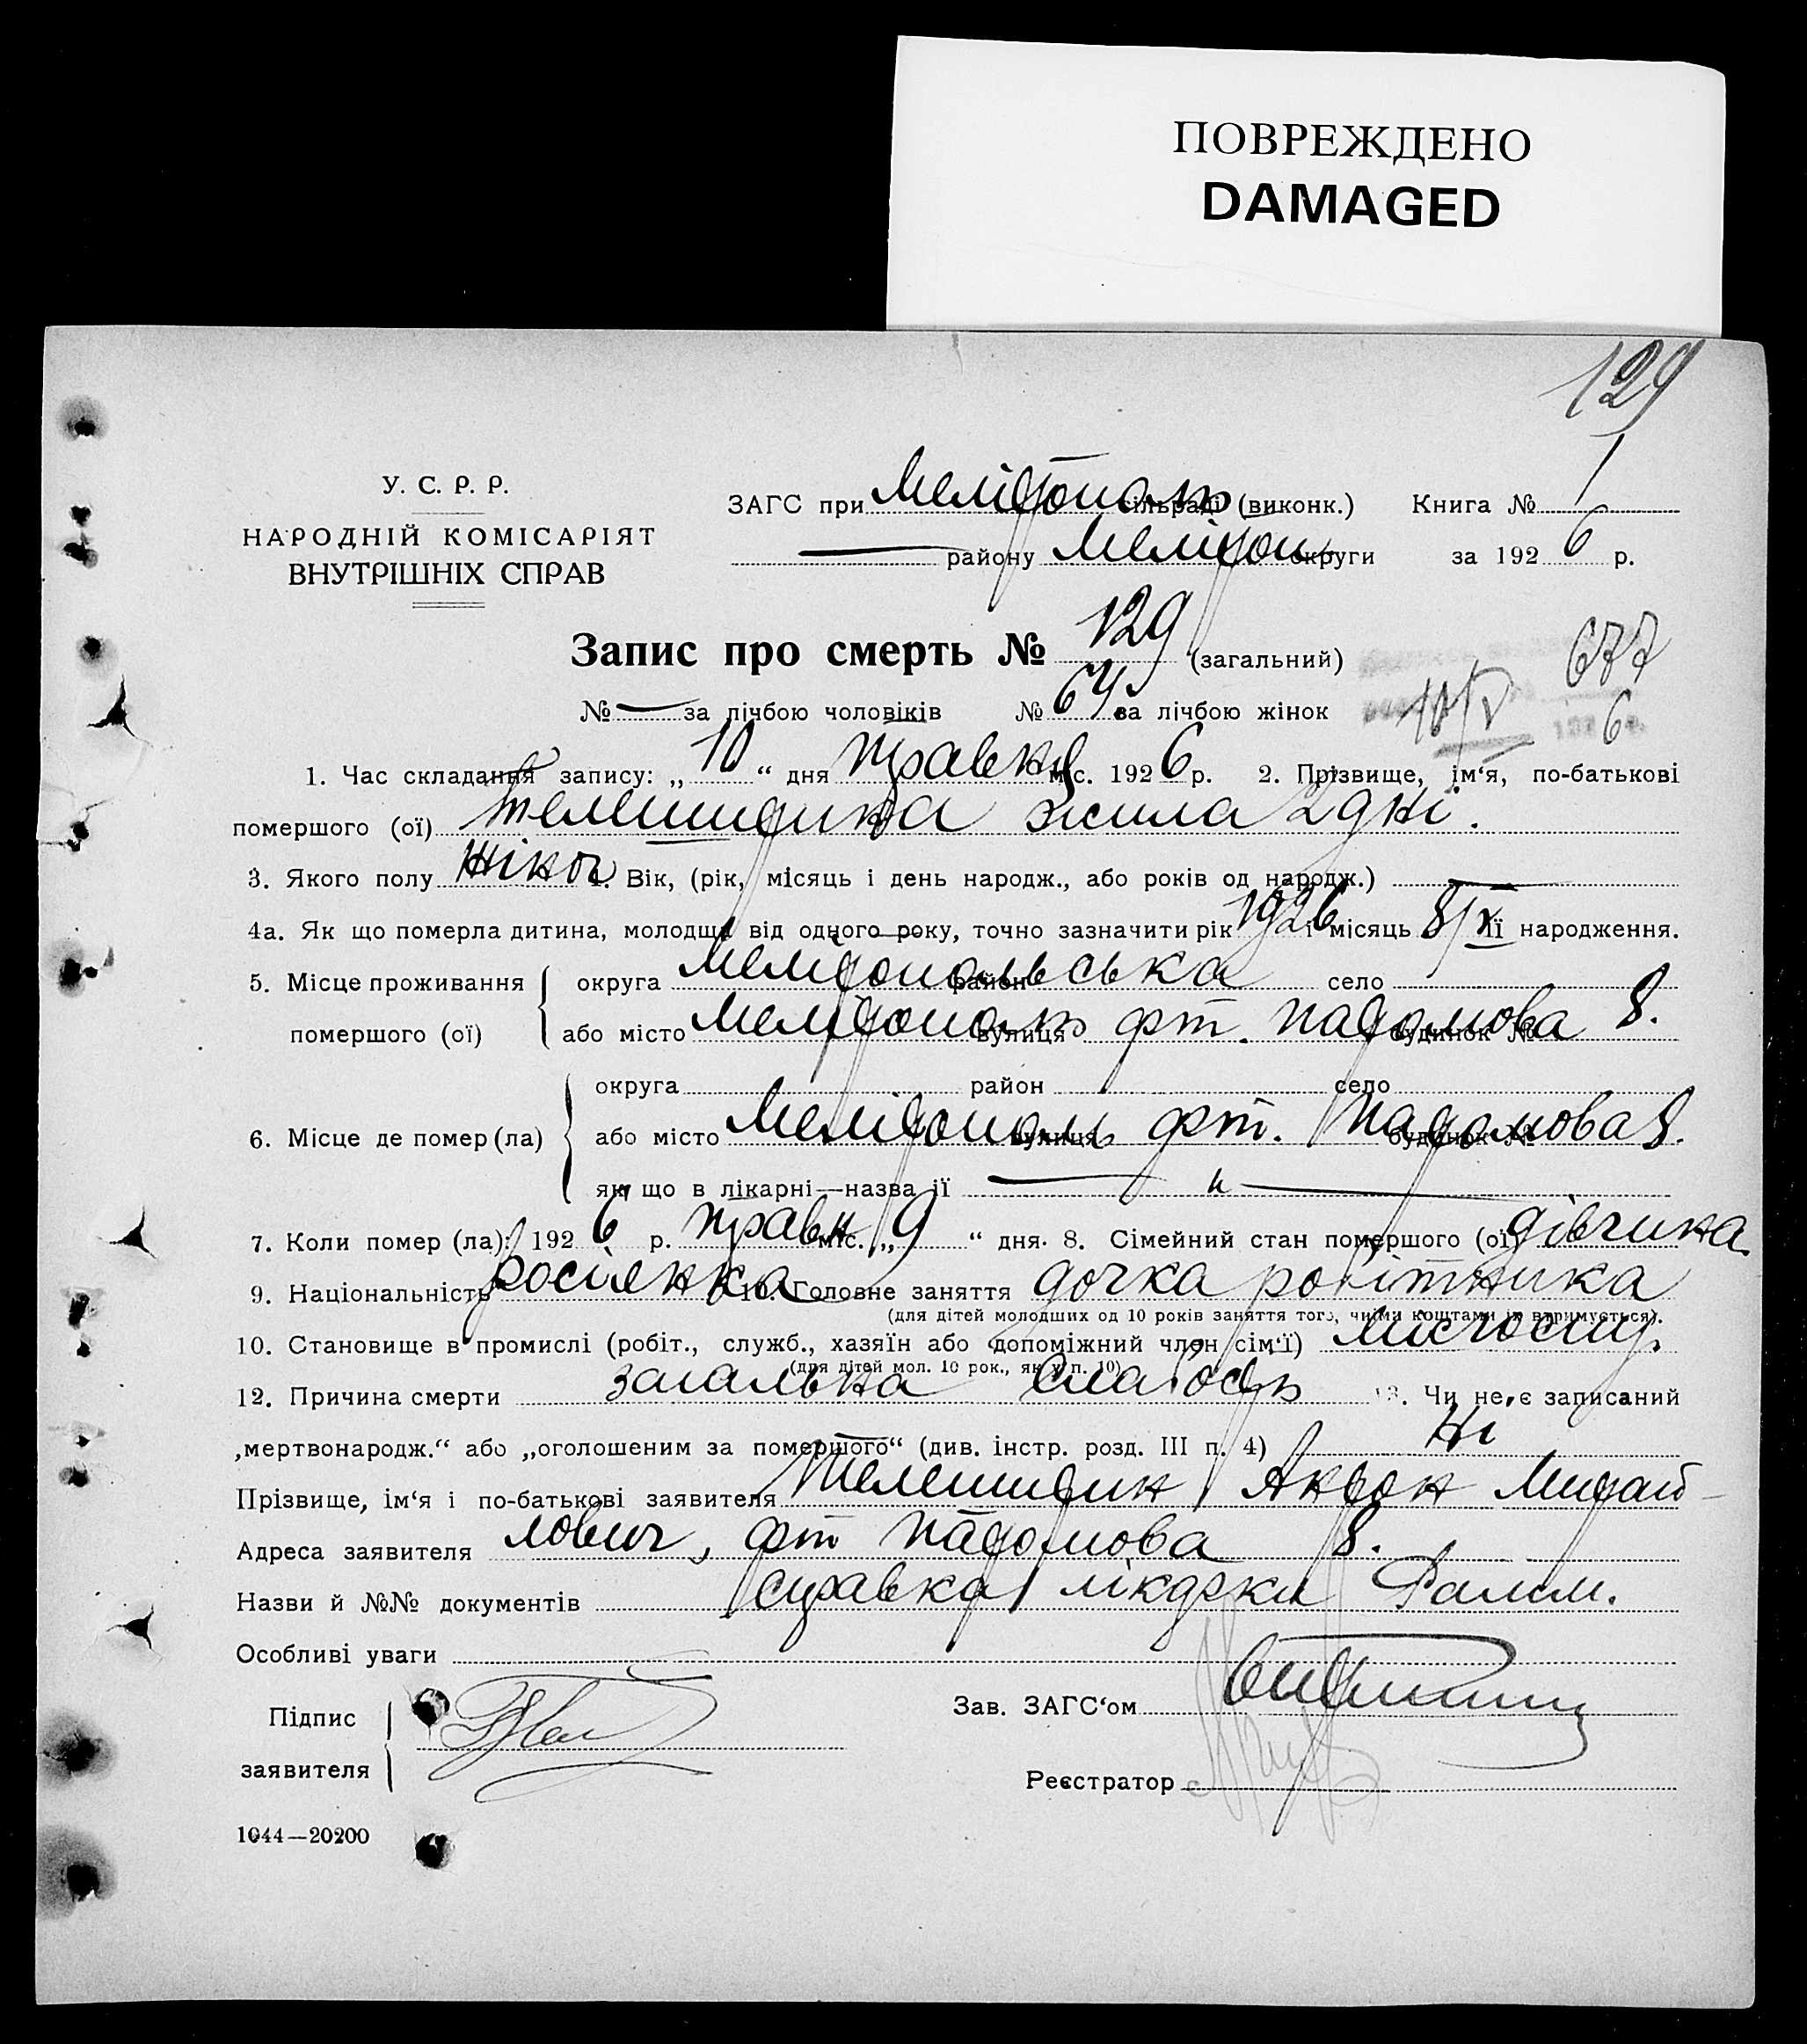 ПОВРЕЖДЕНО
DAMAGED
129
У. С. Р. Р.
НАРОДНІЙ КОМІСАРІЯТ
ВНУТРІШНІХ СПРАВ
ЗАГС при Мелітополь сільраді (виконк.) Книга № 1
— району Мелітоп округи за 1926 р.
Запис про смерть № 129 (загальний)
677
№ — за лічбою чоловіків № 64 за лічбою жінок
10/V 6
1. Час складання запису: „10“ дня травня міс. 1926 р. 2. Прізвище, ім‘я, по-батькові
помершого (ої) жила 2 дні.
3. Якого полу жіноч 4. Вік, (рік, місяць і день народж., або років од народж.) —
4а. Як що померла дитина, молодща від одного року, точно зазначити рік 1926 і місяць 8/V її народження.
5. Місце проживання помершого (ої) округа Мелітопольська район село
або місто Мелітополь вулиця будинок № 8.
6. Місце де помер(ла) округа район село
або місто Мелітополь вулиця будинок № 8.
як що в лікарні—назва її — „ —
7. Коли помер (ла): 1926 р. травн міс. „9“ дня. 8. Сімейний стан помершого (ої) дівчина.
9. Національність росіянка 10. Головне заняття дочка робітника
(для дітей молодших од 10 років заняття того, чиїми коштами їх втримується).
10. Становище в промислі (робіт., служб., хазяїн або допоміжний член сім‘ї)
(для дітей мол. 10 рок., як у п. 10)
12. Причина смерти загальна слабость 13. Чи не є записаний
„мертвонародж.“ або „оголошеним за помершого“ (див. інстр. розд. III п. 4) Ні
Прізвище, ім‘я і по-батькові заявителя Михай-
Адреса заявителя лович, 8.
Назви й №№ документів справка лікарки
Особливі уваги
Підпис заявителя
Зав. ЗАГС‘ом
Реєстратор
1044—20200